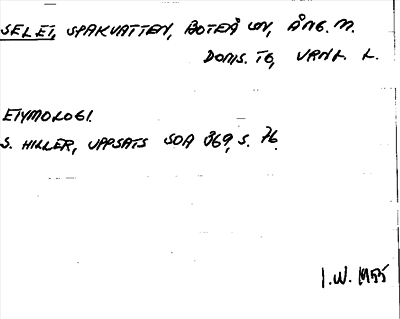 SELET, SPAKVATTEN, BOTEÅ SN, ÅNG. M.
DOMS. TB, VRNL. L.
ETYMOLOGI.
S. HILLER, UPPSATS SOA 869, S. 76.
I.W. 1955